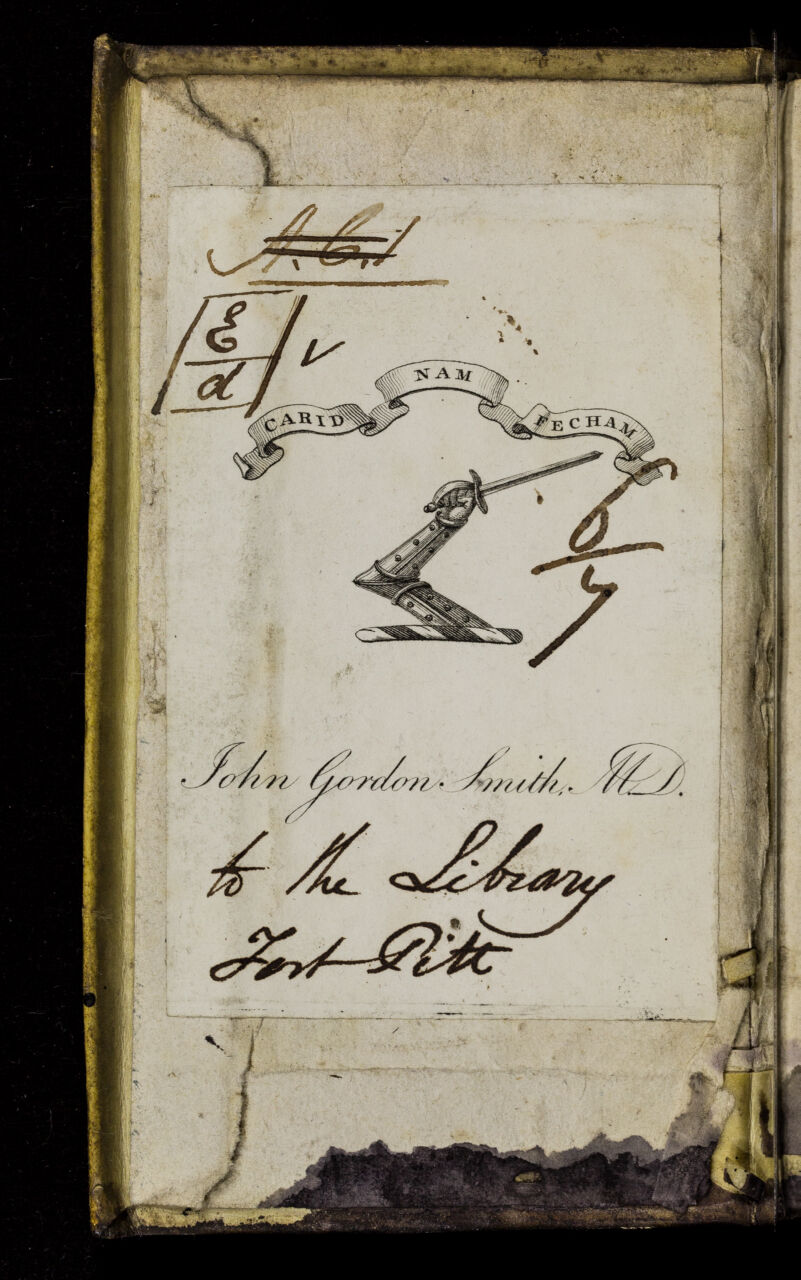 A.C.1
E
d
V
CARID NAM FECHAM
6
7
John Gordon Smith, M.D.
to the Library
Fort Pitt